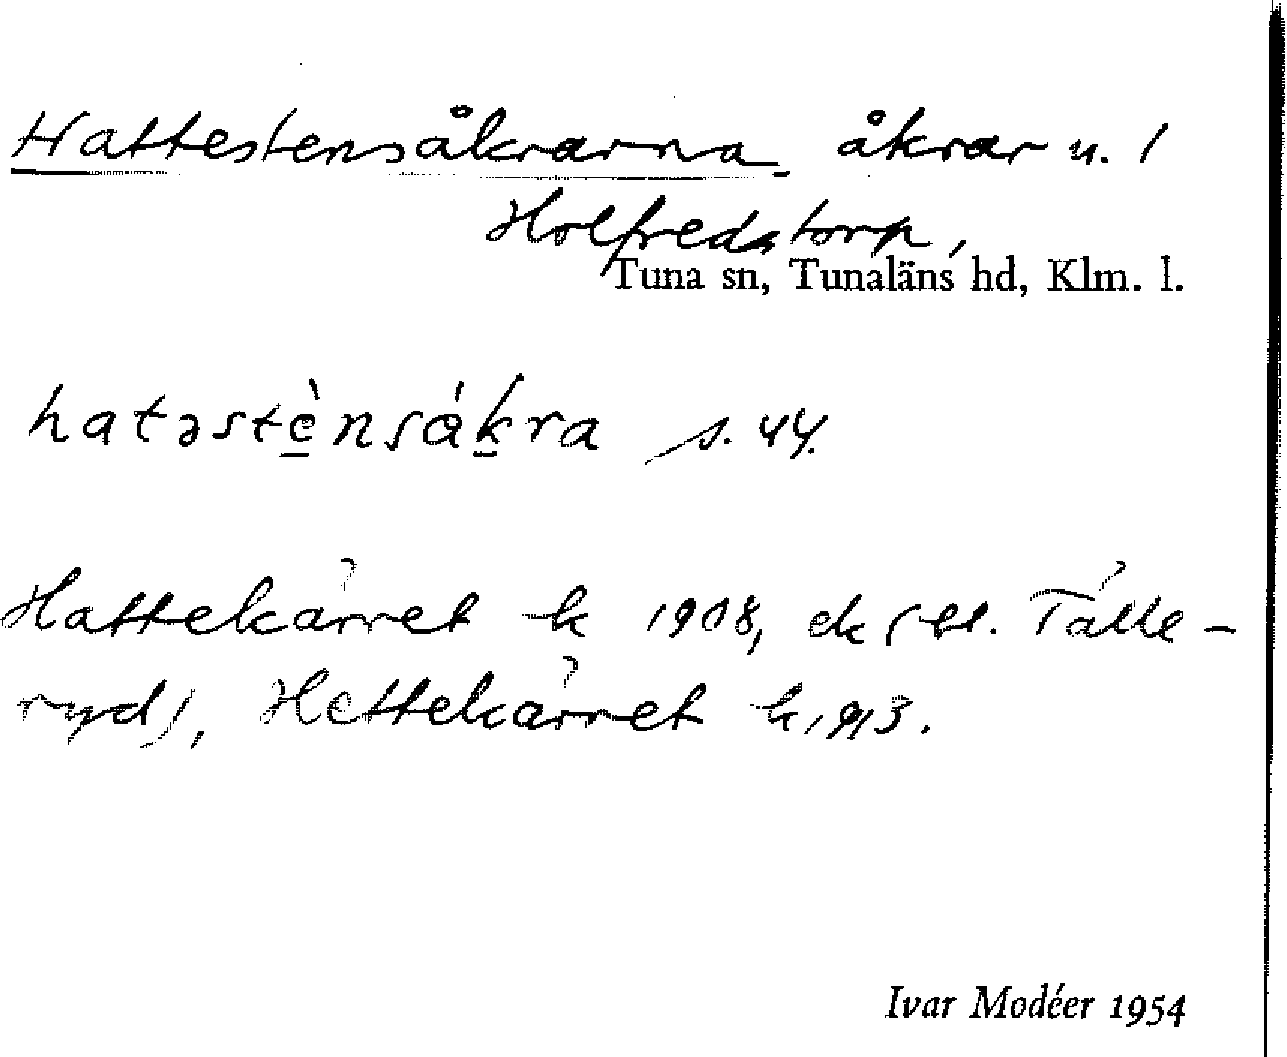 Hattestensåkrarna åkrar u. 1
Holfredstorp,
Tuna sn, Tunaläns hd, Klm. l.
hatəstè̠nsák̠ra s. 44.
Hattekärret k 1908, ek (bl. Tålle-
ryd), Hettekärret k 1913.
Ivar Modéer 1954